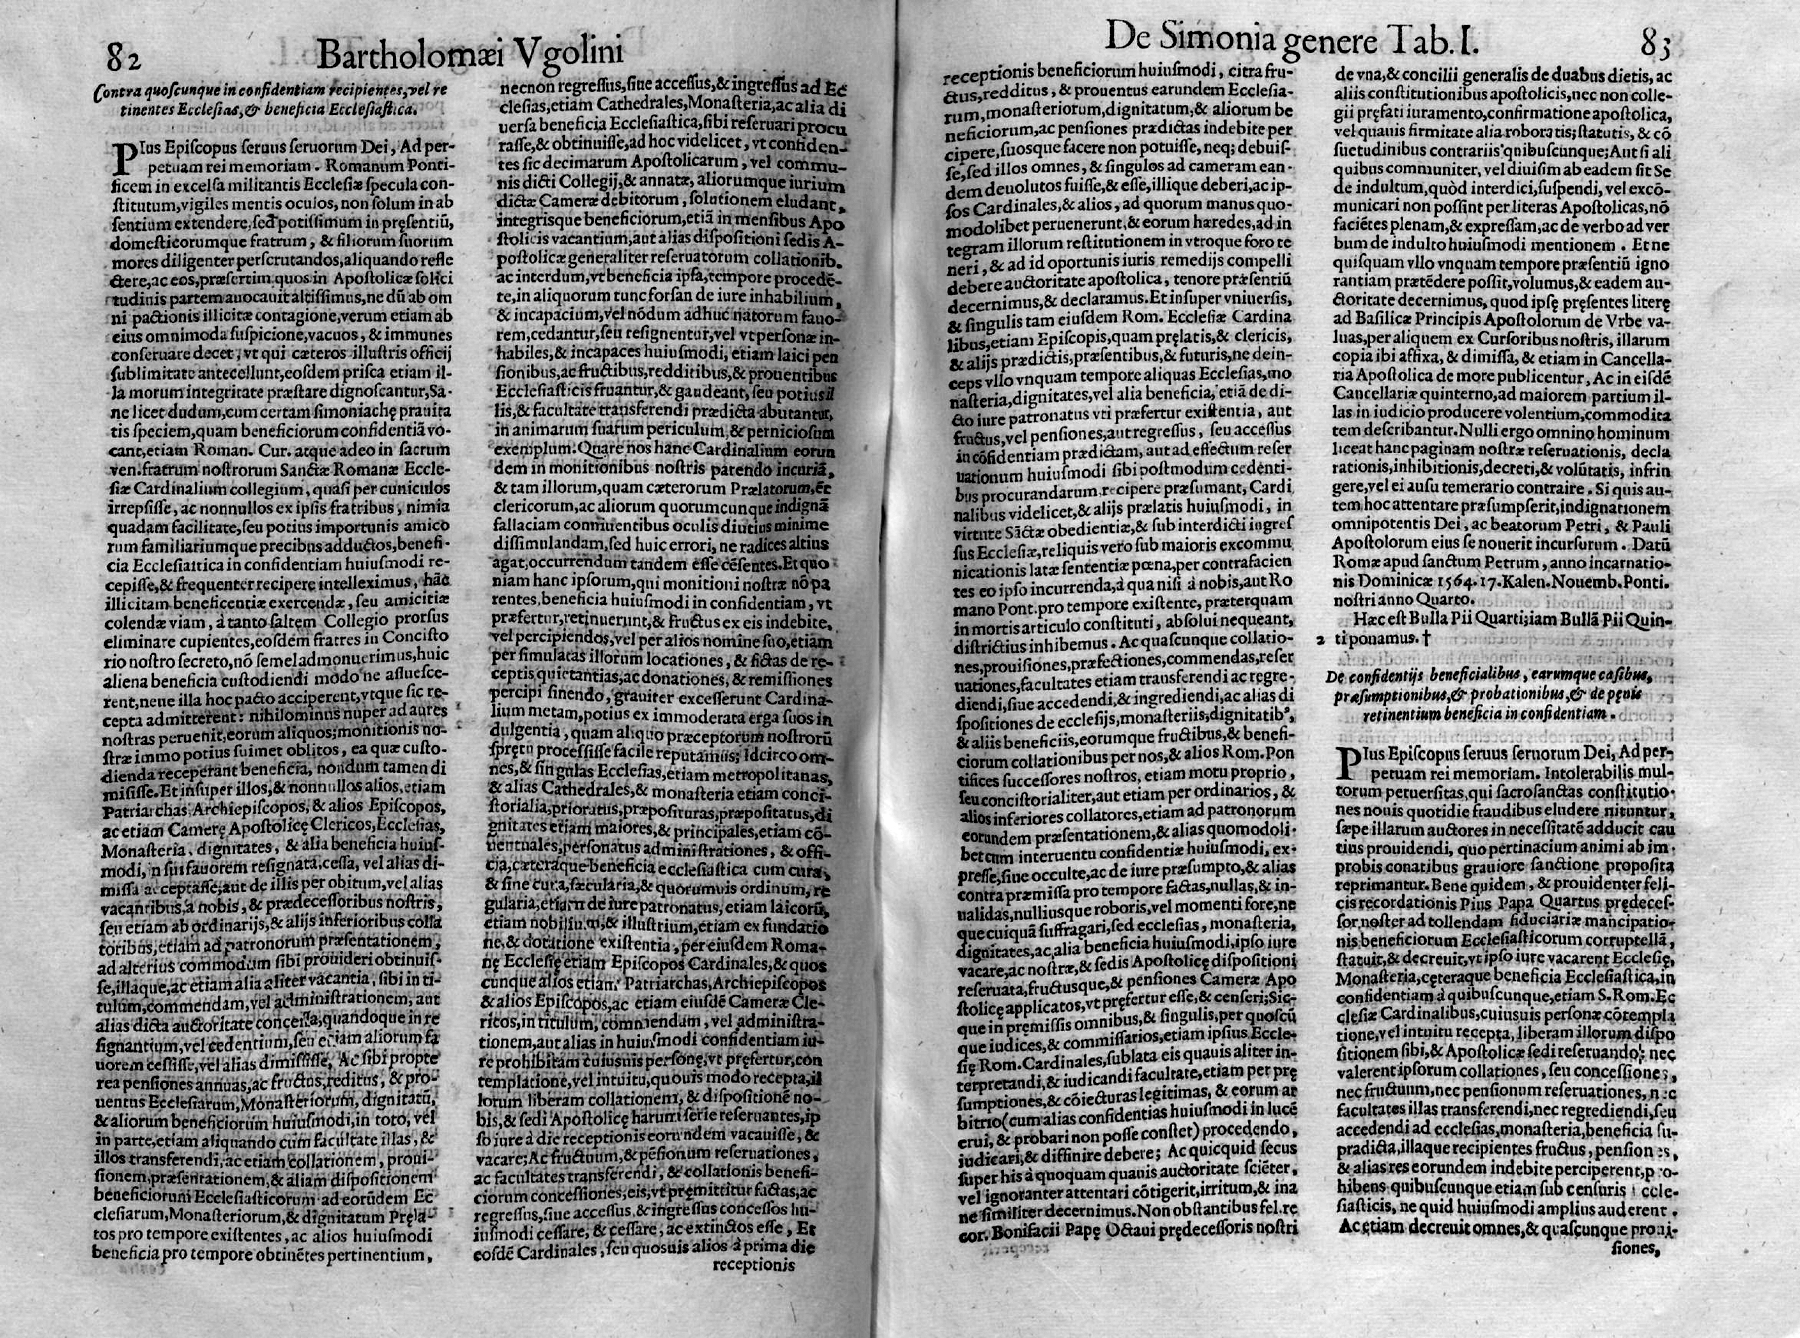 82
Bartholomæi Vgolini
Contra quoscunque in confidentiam recipientes, vel re
tinentes Ecclesias, & beneficia Ecclesiastica.
PIus Episcopus seruus seruorum Dei, Ad per-
petuam rei memoriam. Romanum Ponti-
ficem in excelsa militantis Ecclesiæ specula con-
stitutum, vigiles mentis oculos, non solum in ab
sentium extendere, sed potissimum in pręsentiū,
domesticorumque fratrum, & filiorum suorum
mores diligenter perscrutandos, aliquando refle
ctere, ac eos, præsertim quos in Apostolicæ solici
tudinis partem auocauit altissimus, ne dū ab om
ni pactionis illicitæ contagione, verum etiam ab
eius omnimoda suspicione, vacuos, & immunes
conseruare decet, vt qui cæteros illustris officij
sublimitate antecellunt, eosdem prisca etiam il-
la morum integritate præstare dignoscantur, Sa-
ne licet dudum, cum certam simoniachę prauita
tis speciem, quam beneficiorum confidentiā vo-
cant, etiam Roman. Cur. atque adeo in sacrum
ven. fratrum nostrorum Sanctæ Romanæ Eccle-
siæ Cardinalium collegium, quasi per cuniculos
irrepsisse, ac nonnullos ex ipsis fratribus, nimia
quadam facilitate, seu potius importunis amico
rum familiariumque precibus adductos, benefi-
cia Ecclesiastica in confidentiam huiusmodi re-
cepisse, & frequenter recipere intelleximus, hāc
illicitam beneficentiæ exercendæ, seu amicitiæ
colendæ viam, à tanto saltem Collegio prorsus
eliminare cupientes, eosdem fratres in Concisto
rio nostro secreto, nō semel admonuerimus, huic
aliena beneficia custodiendi modo ne assuesce-
rent, neue illa hoc pacto acciperent, vtque sic re-
cepta admitterent: nihilominus nuper ad aures
nostras peruenit, eorum aliquos, monitionis no-
stræ immo potius suimet oblitos, ea quæ custo-
dienda receperant beneficia, nondum tamen di
misisse. Et insuper illos, & nonnullos alios, etiam
Patriarchas, Archiepiscopos, & alios Episcopos,
ac etiam Camerę Apostolicę Clericos, Ecclesias,
Monasteria, dignitates, & alia beneficia huius-
modi, in sui fauorem resignata, cessa, vel alias di-
missa acceptasse, aut de illis per obitum, vel alias
vacantibus, à nobis, & prædecessoribus nostris,
seu etiam ab ordinarijs, & alijs inferioribus colla
toribus, etiam ad patronorum præsentationem,
ad alterius commodum sibi prouideri obtinuis-
se, illaque, ac etiam alia aliter vacantia, sibi in ti-
tulum, commendam, vel administrationem, aut
alias dicta auctoritate concessa, quandoque in re
signantium, vel cedentium, seu etiam aliorum fa
uorem cessisse, vel alias dimisisse, Ac sibi propte
rea pensiones annuas, ac fructus, reditus, & pro-
uentus Ecclesiarum, Monasteriorum, dignitatū,
& aliorum beneficiorum huiusmodi, in toto, vel
in parte, etiam aliquando cum facultate illas, &
illos transferendi, ac etiam collationem, proui-
sionem, præsentationem, & aliam dispositionem
beneficiorum Ecclesiasticorum ad eorūdem Ec
clesiarum, Monasteriorum, & dignitatum Pręla-
tos pro tempore existentes, ac alios huiusmodi
beneficia pro tempore obtinētes pertinentium,
necnon regressus, siue accessus, & ingressus ad Ec
clesias, etiam Cathedrales, Monasteria, ac alia di
uersa beneficia Ecclesiastica, sibi reseruari procu
rasse, & obtinuisse, ad hoc videlicet, vt confiden-
tes sic decimarum Apostolicarum, vel commu-
nis dicti Collegij, & annatæ, aliorumque iurium
dictæ Cameræ debitorum, solutionem eludant,
integrisque beneficiorum, etiā in mensibus Apo
stolicis vacantium, aut alias dispositioni sedis A-
postolicæ generaliter reseruatorum collationib.
ac interdum, vt beneficia ipsa, tempore procedē-
te, in aliquorum tunc forsan de iure inhabilium,
& incapacium, vel nōdum adhuc natorum fauo-
rem, cedantur, seu resignentur, vel vt personæ in-
habiles, & incapaces huiusmodi, etiam laici pen
sionibus, ac fructibus, redditibus, & prouentibus
Ecclesiasticis fruantur, & gaudeant, seu potius il
lis, & facultate transferendi prædicta abutantur,
in animarum suarum periculum, & perniciosum
exemplum: Quare nos hanc Cardinalium eorun
dem in monitionibus nostris parendo incuriā,
& tam illorum, quam cæterorum Prælatorum, &
clericorum, ac aliorum quorumcunque indignā
fallaciam conniuentibus oculis diutius minime
dissimulandam, sed huic errori, ne radices altius
agat, occurrendum tandem esse cēsentes. Et quo
niam hanc ipsorum, qui monitioni nostræ nō pa
rentes, beneficia huiusmodi in confidentiam, vt
præfertur, retinuerunt, & fructus ex eis indebite,
vel percipiendos, vel per alios nomine suo, etiam
per simulatas illorum locationes, & fictas de re-
ceptis quietantias, ac donationes, & remissiones
percipi sinendo, grauiter excesserunt Cardina-
lium metam, potius ex immoderata erga suos in
dulgentia, quam aliquo præceptorum nostrorū
spretu processisse facile reputamus; Idcirco om-
nes, & singulas Ecclesias, etiam metropolitanas,
& alias Cathedrales, & monasteria etiam conci-
storialia, prioratus, præposituras, præpositatus, di
gnitates etiam maiores, & principales, etiam cō-
uentuales, personatus administrationes, & offi-
cia, cæteraque beneficia ecclesiastica cum cura,
& sine cura, sæcularia, & quorumuis ordinum, re
gularia, etiam de iure patronatus, etiam laicorū,
etiam nobilium, & illustrium, etiam ex fundatio
ne, & dotatione existentia, per eiusdem Roma-
nę Ecclesię etiam Episcopos Cardinales, & quos
cunque alios etiam Patriarchas, Archiepiscopos
& alios Episcopos, ac etiam eiusdē Cameræ Cle-
ricos, in titulum, commendam, vel administra-
tionem, aut alias in huiusmodi confidentiam iu-
re prohibitam cuiusuis personę, vt pręfertur, con
templatione, vel intuitu, quouis modo recepta, il
lorum liberam collationem, & dispositionē no-
bis, & sedi Apostolicę harum serie reseruantes, ip
so iure à die receptionis eorundem vacauisse, &
vacare; Ac fructuum, & pēsionum reseruationes,
ac facultates transferendi, & collationis benefi-
ciorum concessiones, eis, vt pręmittitur factas, ac
regressus, siue accessus, & ingressus concessos hu-
iusmodi cessare, & cessare, ac extinctos esse, Et
eosdē Cardinales, seu quosuis alios à prima die
receptionis
De Simonia genere Tab. I.
83
receptionis beneficiorum huiusmodi, citra fru-
ctus, redditus, & prouentus earundem Ecclesia-
rum, monasteriorum, dignitatum, & aliorum be
neficiorum, ac pensiones prædictas indebite per
cipere, suosque facere non potuisse, neq; debuis-
se, sed illos omnes, & singulos ad cameram ean-
dem deuolutos fuisse, & esse, illique deberi, ac ip-
sos Cardinales, & alios, ad quorum manus quo-
modolibet peruenerunt, & eorum hæredes, ad in
tegram illorum restitutionem in vtroque foro te
neri, & ad id oportunis iuris remedijs compelli
debere auctoritate apostolica, tenore præsentiū
decernimus, & declaramus. Et insuper vniuersis,
& singulis tam eiusdem Rom. Ecclesiæ Cardina
libus, etiam Episcopis, quam pręlatis, & clericis,
& alijs prædictis, præsentibus, & futuris, ne dein-
ceps vllo vnquam tempore aliquas Ecclesias, mo
nasteria, dignitates, vel alia beneficia, etiā de di-
cto iure patronatus vti præfertur existentia, aut
fructus, vel pensiones, aut regressus, seu accessus
in cōfidentiam prædictam, aut ad effectum reser
uationum huiusmodi sibi postmodum cedenti-
bus procurandarum recipere præsumant, Cardi
nalibus videlicet, & alijs prælatis huiusmodi, in
virtute Sāctæ obedientiæ, & sub interdicti ingres
sus Ecclesiæ, reliquis vero sub maioris excommu
nicationis latæ sententiæ pœna, per contrafacien
tes eo ipso incurrenda, à qua nisi à nobis, aut Ro
mano Pont. pro tempore existente, præterquam
in mortis articulo constituti, absolui nequeant,
districtius inhibemus. Ac quascunque collatio-
nes, prouisiones, præfectiones, commendas, reser
uationes, facultates etiam transferendi ac regre-
diendi, siue accedendi, & ingrediendi, ac alias di
spositiones de ecclesijs, monasteriis, dignitatib⁹,
& aliis beneficiis, eorumque fructibus, & benefi-
ciorum collationibus per nos, & alios Rom. Pon
tifices successores nostros, etiam motu proprio,
seu concistorialiter, aut etiam per ordinarios, &
alios inferiores collatores, etiam ad patronorum
eorundem præsentationem, & alias quomodoli-
bet cum interuentu confidentiæ huiusmodi, ex-
presse, siue occulte, ac de iure præsumpto, & alias
contra præmissa pro tempore factas, nullas, & in-
ualidas, nulliusque roboris, vel momenti fore, ne
que cuiquā suffragari, sed ecclesias, monasteria,
dignitates, ac alia beneficia huiusmodi, ipso iure
vacare, ac nostræ, & sedis Apostolicę dispositioni
reseruata, fructusque, & pensiones Cameræ Apo
stolicę applicatos, vt pręfertur esse, & censeri; Sic-
que in pręmissis omnibus, & singulis, per quoscū
que iudices, & commissarios, etiam ipsius Eccle-
się Rom. Cardinales, sublata eis quauis aliter in-
terpretandi, & iudicandi facultate, etiam per prę
sumptiones, & cōiecturas legitimas, & eorum ar
bitrio (cum alias confidentias huiusmodi in lucē
erui, & probari non posse constet) procedendo,
iudicari, & diffinire debere; Ac quicquid secus
super his à quoquam quauis auctoritate sciēter,
vel ignoranter attentari cōtigerit, irritum, & ina
ne similiter decernimus. Non obstantibus fel. re
cor. Bonifacii Papę Octaui prędecessoris nostri
de vna, & concilii generalis de duabus dietis, ac
aliis constitutionibus apostolicis, nec non colle-
gii pręfati iuramento, confirmatione apostolica,
vel quauis firmitate alia roboratis; statutis, & cō
suetudinibus contrariis quibuscunque; Aut si ali
quibus communiter, vel diuisim ab eadem sit Se
de indultum, quòd interdici, suspendi, vel excō-
municari non possint per literas Apostolicas, nō
faciētes plenam, & expressam, ac de verbo ad ver
bum de indulto huiusmodi mentionem. Et ne
quisquam vllo vnquam tempore præsentiū igno
rantiam prætēdere possit, volumus, & eadem au-
ctoritate decernimus, quod ipsę pręsentes literę
ad Basilicæ Principis Apostolorum de Vrbe va-
luas, per aliquem ex Cursoribus nostris, illarum
copia ibi affixa, & dimissa, & etiam in Cancella-
ria Apostolica de more publicentur, Ac in eisdē
Cancellariæ quinterno, ad maiorem partium il-
las in iudicio producere volentium, commodita
tem describantur. Nulli ergo omnino hominum
liceat hanc paginam nostræ reseruationis, decla
rationis, inhibitionis, decreti, & volūtatis, infrin
gere, vel ei ausu temerario contraire. Si quis au-
tem hoc attentare præsumpserit, indignationem
omnipotentis Dei, ac beatorum Petri, & Pauli
Apostolorum eius se nouerit incursurum. Datū
Romæ apud sanctum Petrum, anno incarnatio-
nis Dominicæ 1564. 17. Kalen. Nouemb. Ponti.
nostri anno Quarto.
Hæc est Bulla Pii Quarti; iam Bullā Pii Quin-
2 ti ponamus. †
De confidentijs beneficialibus, earumque casibus,
præsumptionibus, & probationibus, & de pęnis
retinentium beneficia in confidentiam.
PIus Episcopus seruus seruorum Dei, Ad per-
petuam rei memoriam. Intolerabilis mul-
torum peruersitas, qui sacrosanctas constitutio-
nes nouis quotidie fraudibus eludere nituntur,
sæpe illarum auctores in necessitatē adducit cau
tius prouidendi, quo pertinacium animi ab im-
probis conatibus grauiore sanctione proposita
reprimantur. Bene quidem, & prouidenter feli-
cis recordationis Pius Papa Quartus prędeces-
sor noster ad tollendam fiduciariæ mancipatio-
nis beneficiorum Ecclesiasticorum corruptellā,
statuit, & decreuit, vt ipso iure vacarent Ecclesię,
Monasteria, cęteraque beneficia Ecclesiastica, in
confidentiam à quibuscunque, etiam S. Rom. Ec
clesiæ Cardinalibus, cuiusuis personæ cōtempla
tione, vel intuitu recepta, liberam illorum dispo
sitionem sibi, & Apostolicæ sedi reseruando; nec
valerent ipsorum collationes, seu concessiones,
nec fructuum, nec pensionum reseruationes, nec
facultates illas transferendi, nec regrediendi, seu
accedendi ad ecclesias, monasteria, beneficia su-
pradicta, illaque recipientes fructus, pensiones,
& alias res eorundem indebite perciperent, pro-
hibens quibuscunque etiam sub censuris eccle-
siasticis, ne quid huiusmodi amplius auderent.
Ac etiam decreuit omnes, & quascunque proui-
siones,